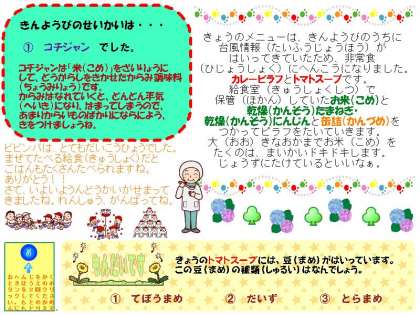 きんようびのせいかいは・・・
① コチジャン でした。
コチジャンは「米(こめ)」をざいりょうに
して、とうがらしをきかせたからみ調味料
(ちょうみりょう)です。
からみはなれていくと、どんどん平気
(へいき)になり、はまってしまうので、
あまりからいものばかりにならにょう、
きをつけましょうね。
ビビンバは、とてもだいこうひょうでした。
まぜてたべる給食(きゅうしょく)だと
ごはんもたくさんたべられますね。
ありがとう!
さて、いよいようんどうかいがせまって
きましたね。れんしゅう、がんばってね。
きょうのメニューは、きんようびのうちに
台風情報(たいふうじょうほう)が
はいってきていたため、非常食
(ひじょうしょく)にへんこうになりました。
カレーピラフとトマトスープです。
給食室(きゅうしょくしつ)で
保管(ほかん)していたお米(こめ)と
乾燥(かんそう)たまねぎ・
乾燥(かんそう)にんじんと缶詰(かんづめ)を
つかってピラフをたいていきます。
大(おお)きなおかまでお米(こめ)を
たくのは、まいかいドキドキします。
じょうずにたけているといいなぁ。
もんだいです
きょうのトマトスープには、豆(まめ)がはいっています。
この豆(まめ)の種類(しゅるい)はなんでしょう。
① てぼうまめ ② だいず ③ とらまめ